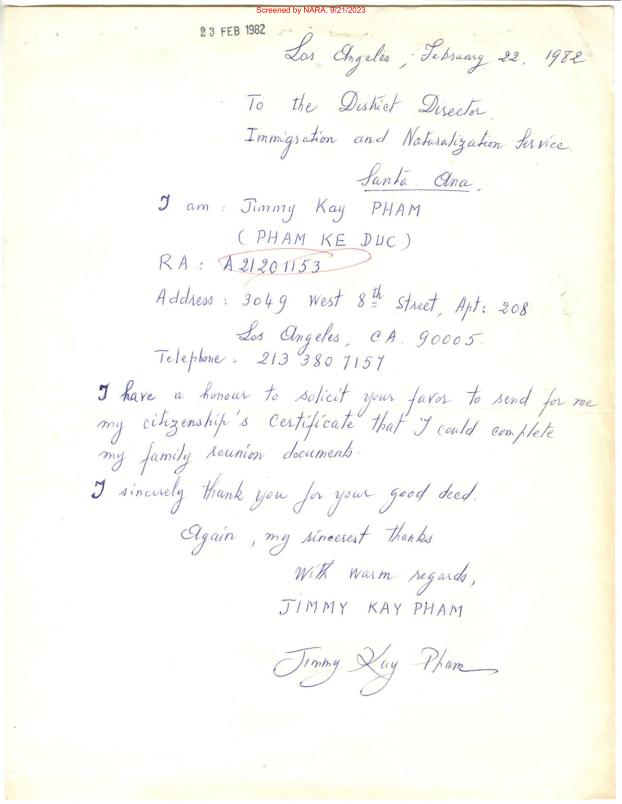 Screened by NARA, 9/21/2023
23 FEB 1982
Los Angeles, February 22, 1982
To the District Director.
Immigration and Naturalization Service.
Santa Ana.
I am : Jimmy Kay PHAM
( PHAM KE DUC )
RA : A21201153
Address : 3049 West 8th Street, Apt: 208
Los Angeles, CA. 90005.
Telephone . 213 380 7157
I have a honour to solicit your favor to send for me
my citizenship's certificate that I could complete
my family reunion documents.
I sincerely thank you for your good deed.
Again, my sincerest thanks
With warm regards,
JIMMY KAY PHAM
Jimmy Kay Pham